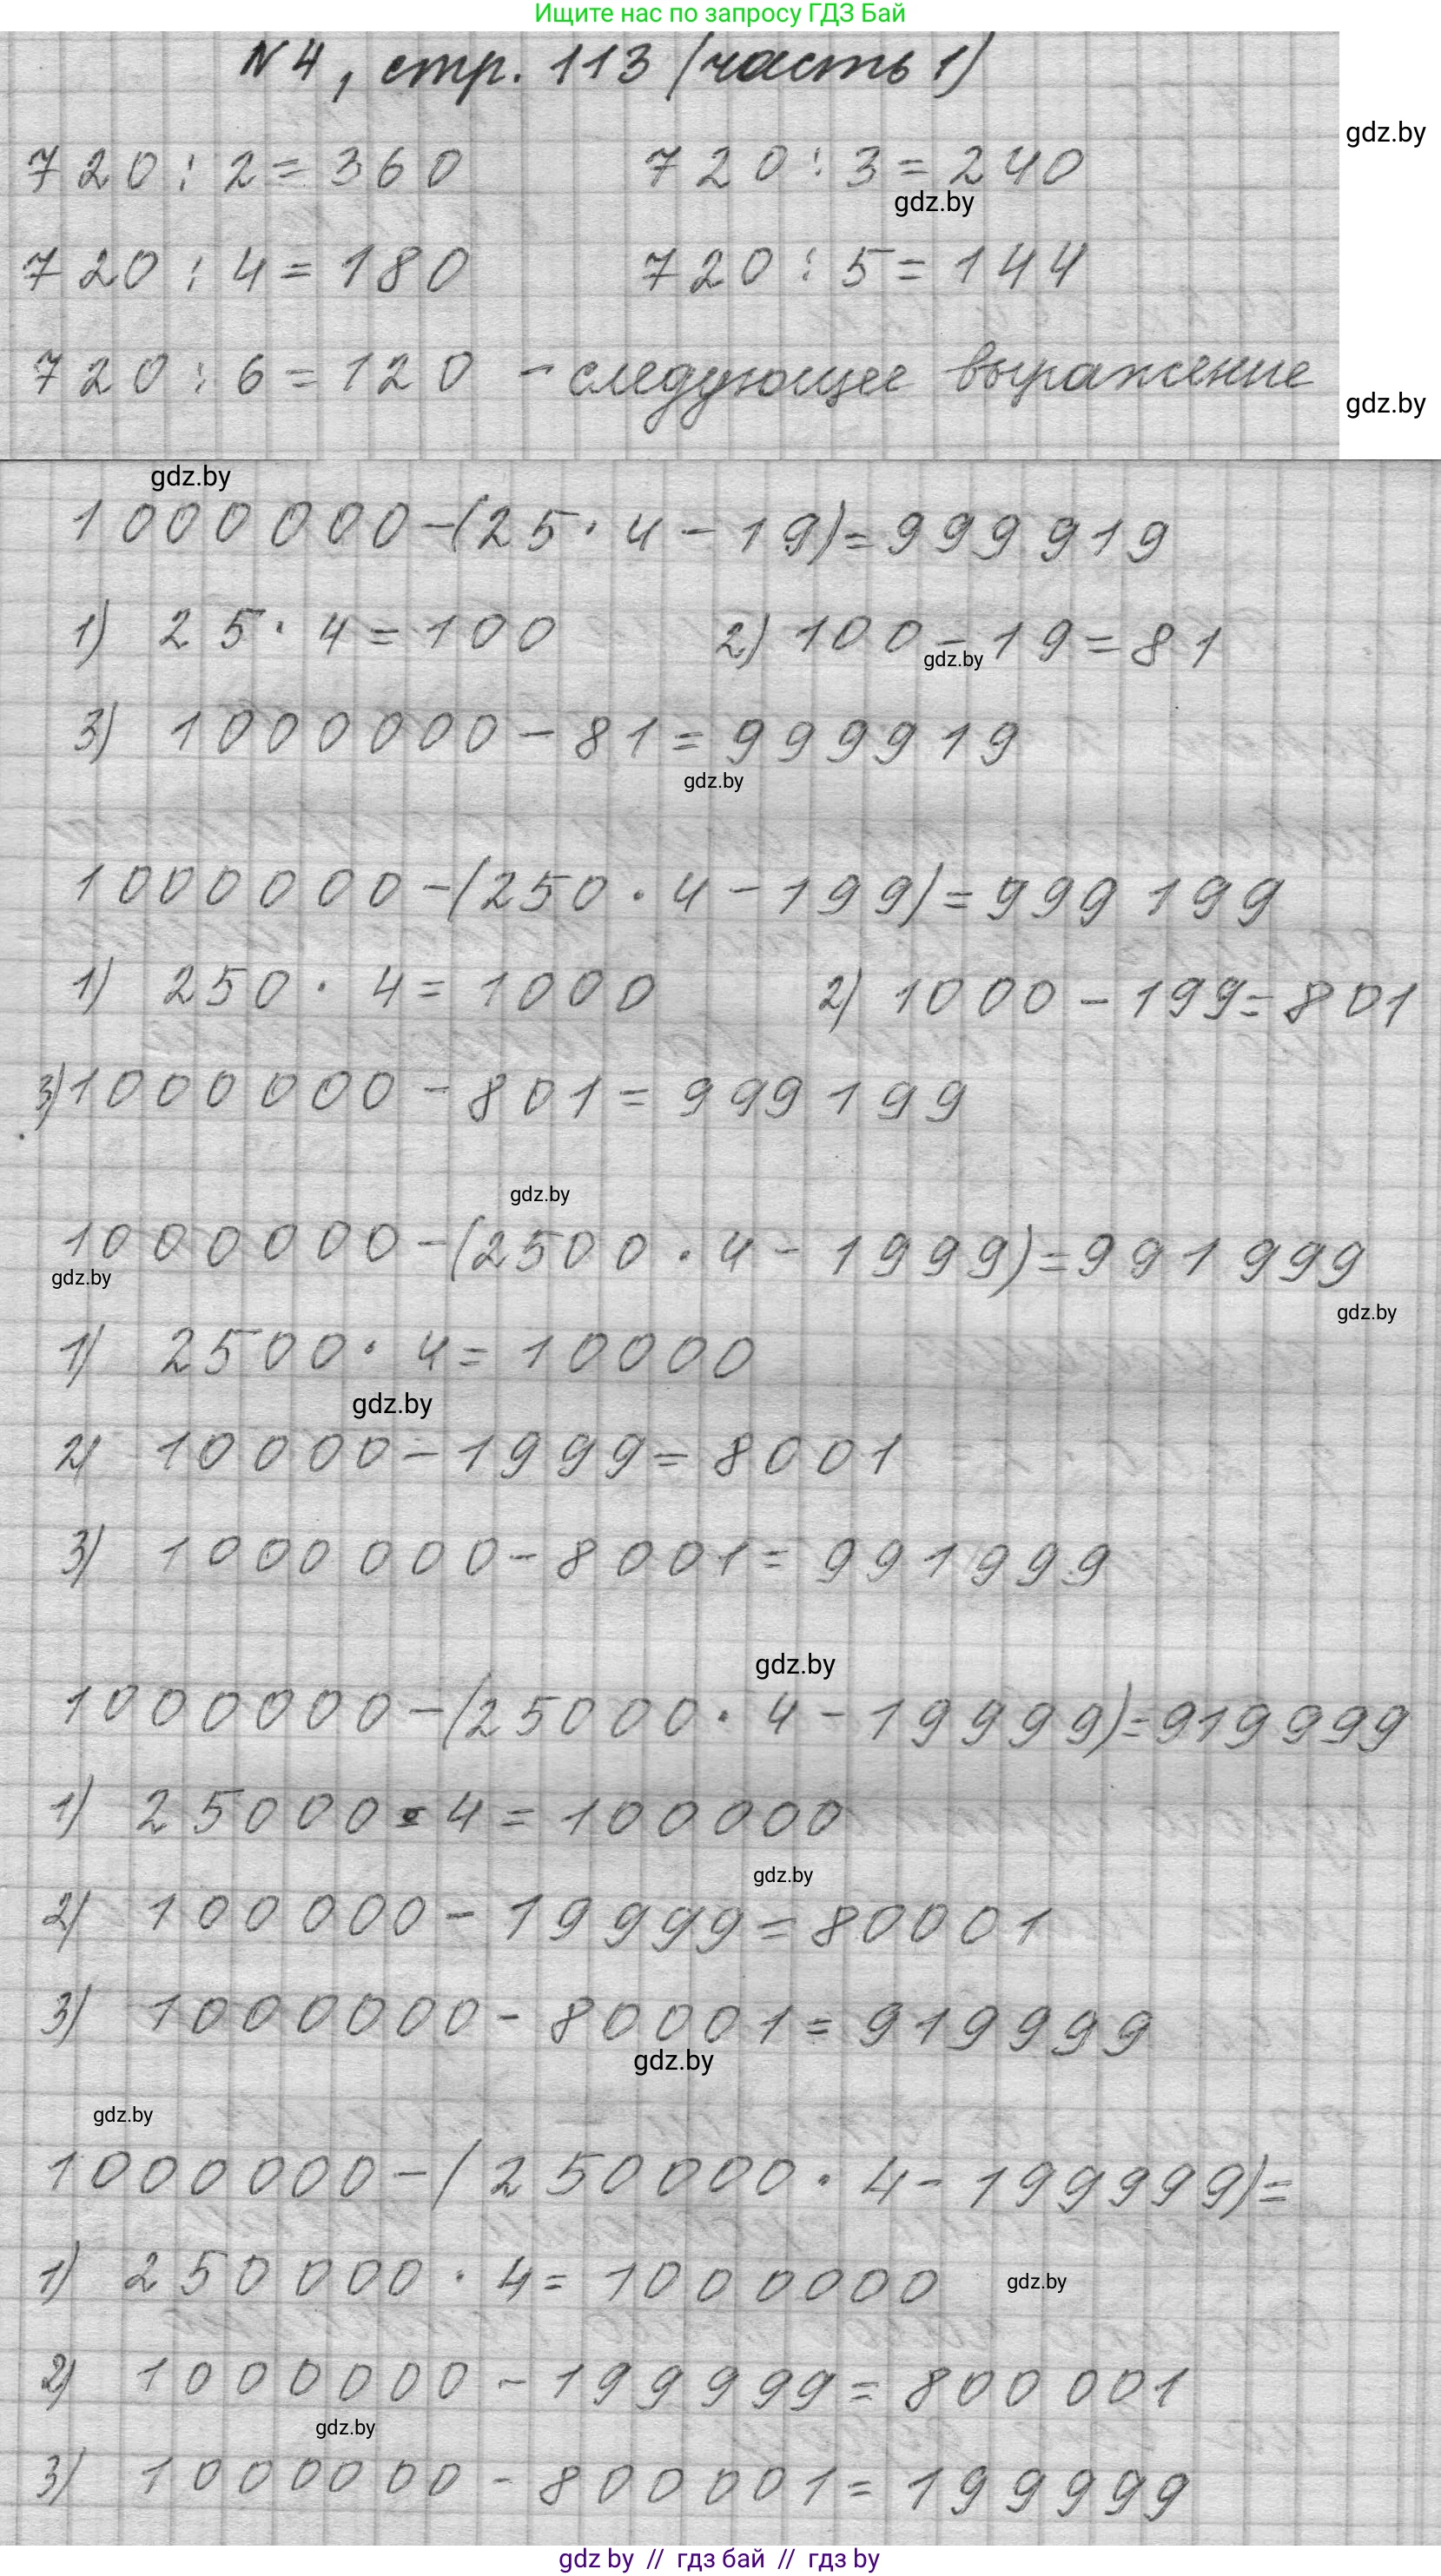 Ищите нас по запросу ГДЗ Бай
№ 4, стр. 113 (часть 1)
gdz.by
720 : 2 = 360 720 : 3 = 240
gdz.by
720 : 4 = 180 720 : 5 = 144
720 : 6 = 120 - следующее выражение
gdz.by
gdz.by
1000000-(25·4-19)=999919
1) 25·4=100 2) 100-19=81
gdz.by
3) 1000000-81=999919
gdz.by
1000000-(250·4-199)=999199
1) 250·4=1000 2) 1000-199=801
3) 1000000-801=999199
gdz.by
1000000-(2500·4-1999)=991999
gdz.by
gdz.by
1) 2500·4=10000
gdz.by
2) 10000-1999=8001
3) 1000000-8001=991999
gdz.by
1000000-(25000·4-19999)=919999
1) 25000·4=100000
gdz.by
2) 100000-19999=80001
3) 1000000-80001=919999
gdz.by
gdz.by
1000000-(250000·4-199999)=
1) 250000·4=1000000
gdz.by
2) 1000000-199999=800001
gdz.by
3) 1000000-800001=199999
gdz by // гдз бай // гдз by